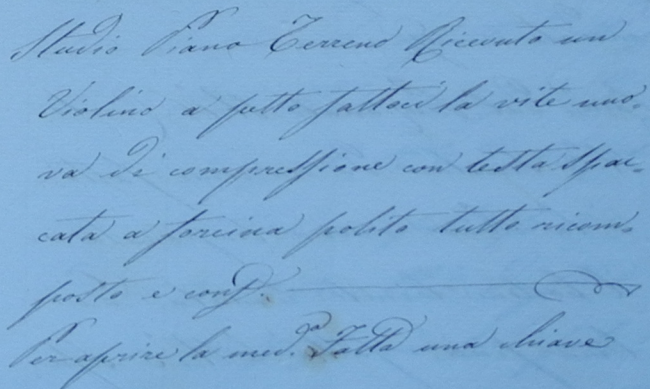 Studio Piano Terreno Ricevuto un
Violino a petto fattoci la vite nuo-
va di compressione con testa spac-
cata a forcina polito tutto ricom-
posto e cons.
Per aprire la med.a Fatta una chiave